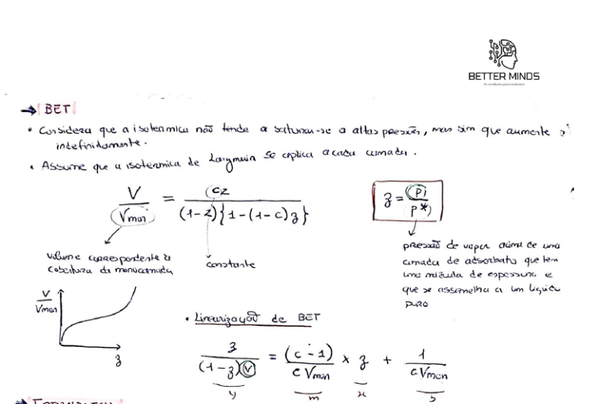 BETTER MINDS
→ BET
• Considera que a isotermica não tende a saturar-se a altas pressões, mas sim que aumente
indefinidamente.
• Assume que a isotermica de Langmuir se aplica a cada camada.
V / Vmon = cz / (1-z){1-(1-c)z}
z = pi / p*
volume correspondente à
cobertura da monocamada
constante
pressão de vapor acima de uma
camada de adsorbato que tem
uma molécula de espessura e
que se assemelha a um líquido
puro
V / Vmon
z
• Linearização de BET
z / (1-z)V = (c-1) / c Vmon × z + 1 / c Vmon
y m x